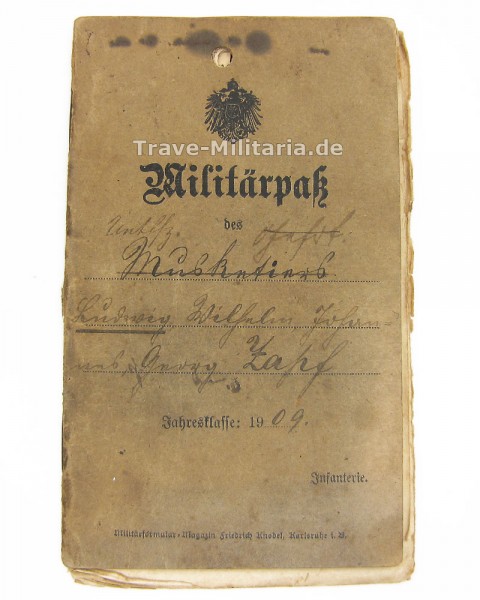 Trave-Militaria.de
Militärpaß
Untffz. des Gefrt.
Musketiers
Ludwig Wilhelm Johan-
nes Georg Zapf
Jahresklasse: 1909.
Infanterie.
Militärformular-Magazin Friedrich Knodel, Karlsruhe i. B.